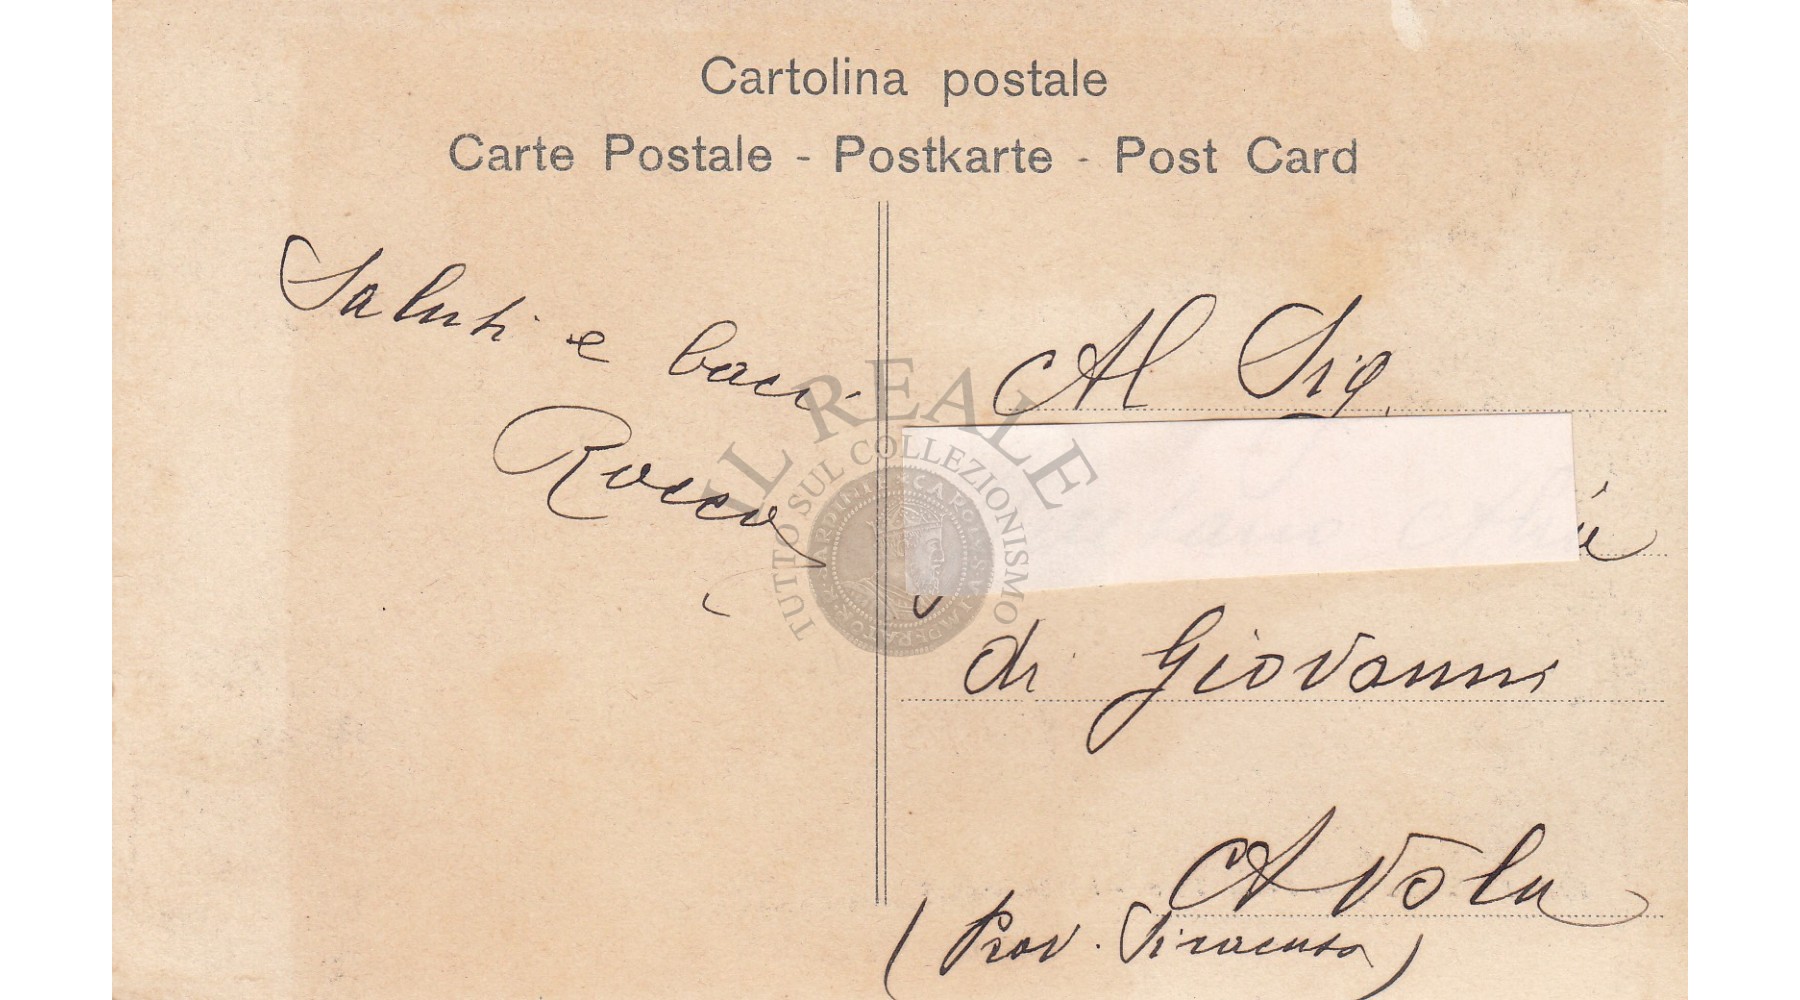 Cartolina postale
Carte Postale - Postkarte - Post Card
Saluti e baci
Rocco
Al Sig.
di Giovanni
Avola
(Prov. Siracusa)
IL REALE
TUTTO SUL COLLEZIONISMO